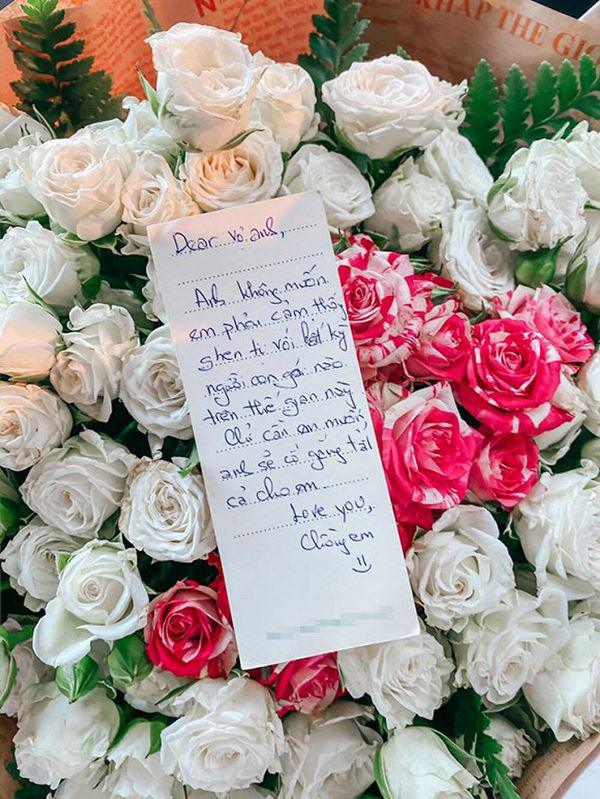 KHẮP THẾ GIỚ
Dear vợ anh,
Anh không muốn
em phải cảm thấy
ghen tị với bất kỳ
người con gái nào
trên thế gian này
Chỉ cần em muốn,
anh sẽ cố gắng tất
cả cho em
Love you,
Chồng em